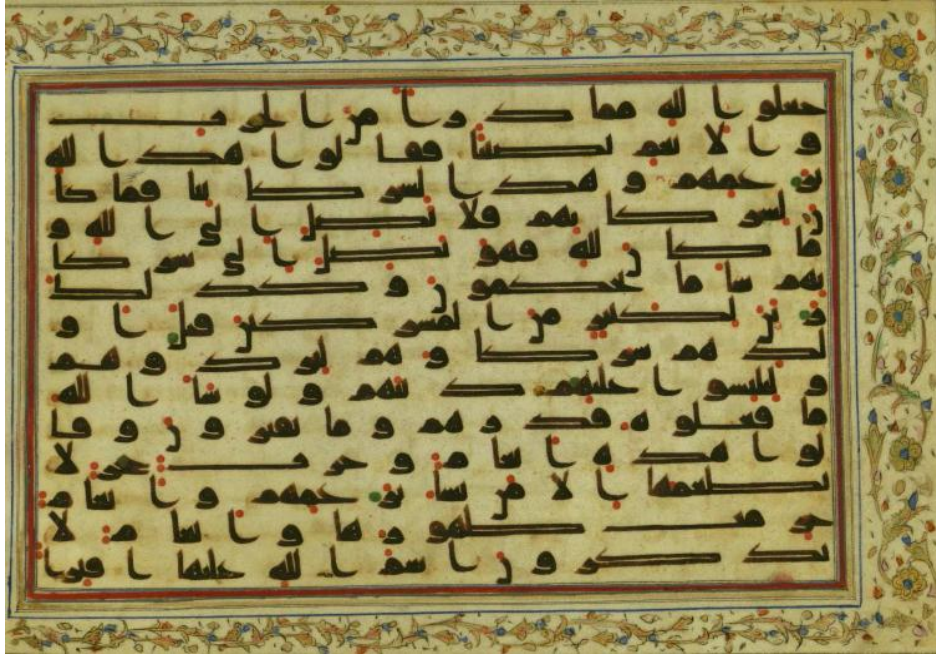 جعلوا لله مما ذرا من الحرث
والانعم نصيبا فقالوا هذا لله
بزعمهم وهذا لشركائنا فما كا
ن لشركائهم فلا يصل الى الله و
ما كان لله فهو يصل الى شركا
ئهم سا ما يحكمون وكذلك
زين لكثير من المشركين قتل او
لدهم شركاوهم ليردوهم
وليلبسوا عليهم دينهم ولو شا الله
ما فعلوه فذرهم وما يفترون وقا
لوا هذه انعم وحرث حجر لا
يطعمها الا من نشا بزعمهم وانعم
حرمت ظهورها وانعم لا
يذكرون اسم الله عليها افترا